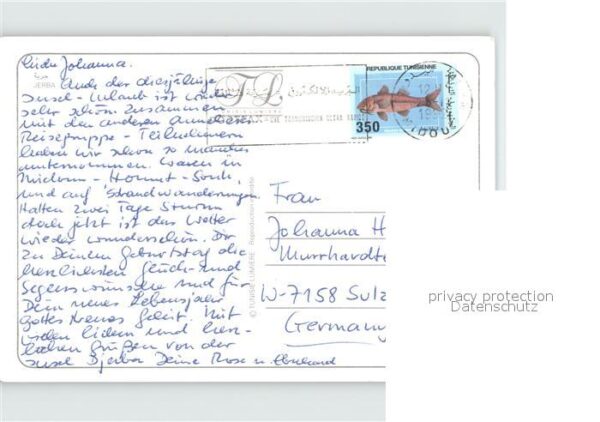 Liebe Johanna.
Auch der diesjährige
Insel-Urlaub ist wieder
sehr schön zusammen
mit den anderen
Reisegruppe-Teilnehmern
haben wir schon so manches
unternommen. Waren in
Midoun - Houmt-Souk,
und auf Strandwanderungen.
Hatten zwei Tage Sturm
doch jetzt ist das Wetter
wieder wunderschön. Dir
zu Deinem Geburtstag die
herzlichsten Glück- und
Segenswünsche und für
Dein neues Lebensjahr
Gottes treues Geleit. Mit
vielen lieben und herz-
lichen Grüßen von der
Insel Djerba Deine Rose u. Eberhard
JERBA
REPUBLIQUE TUNISIENNE
350
© TUNISIE LUMIERE
Frau
Johanna H
Murrhardte
W-7158 Sulz
Germany
privacy protection
Datenschutz